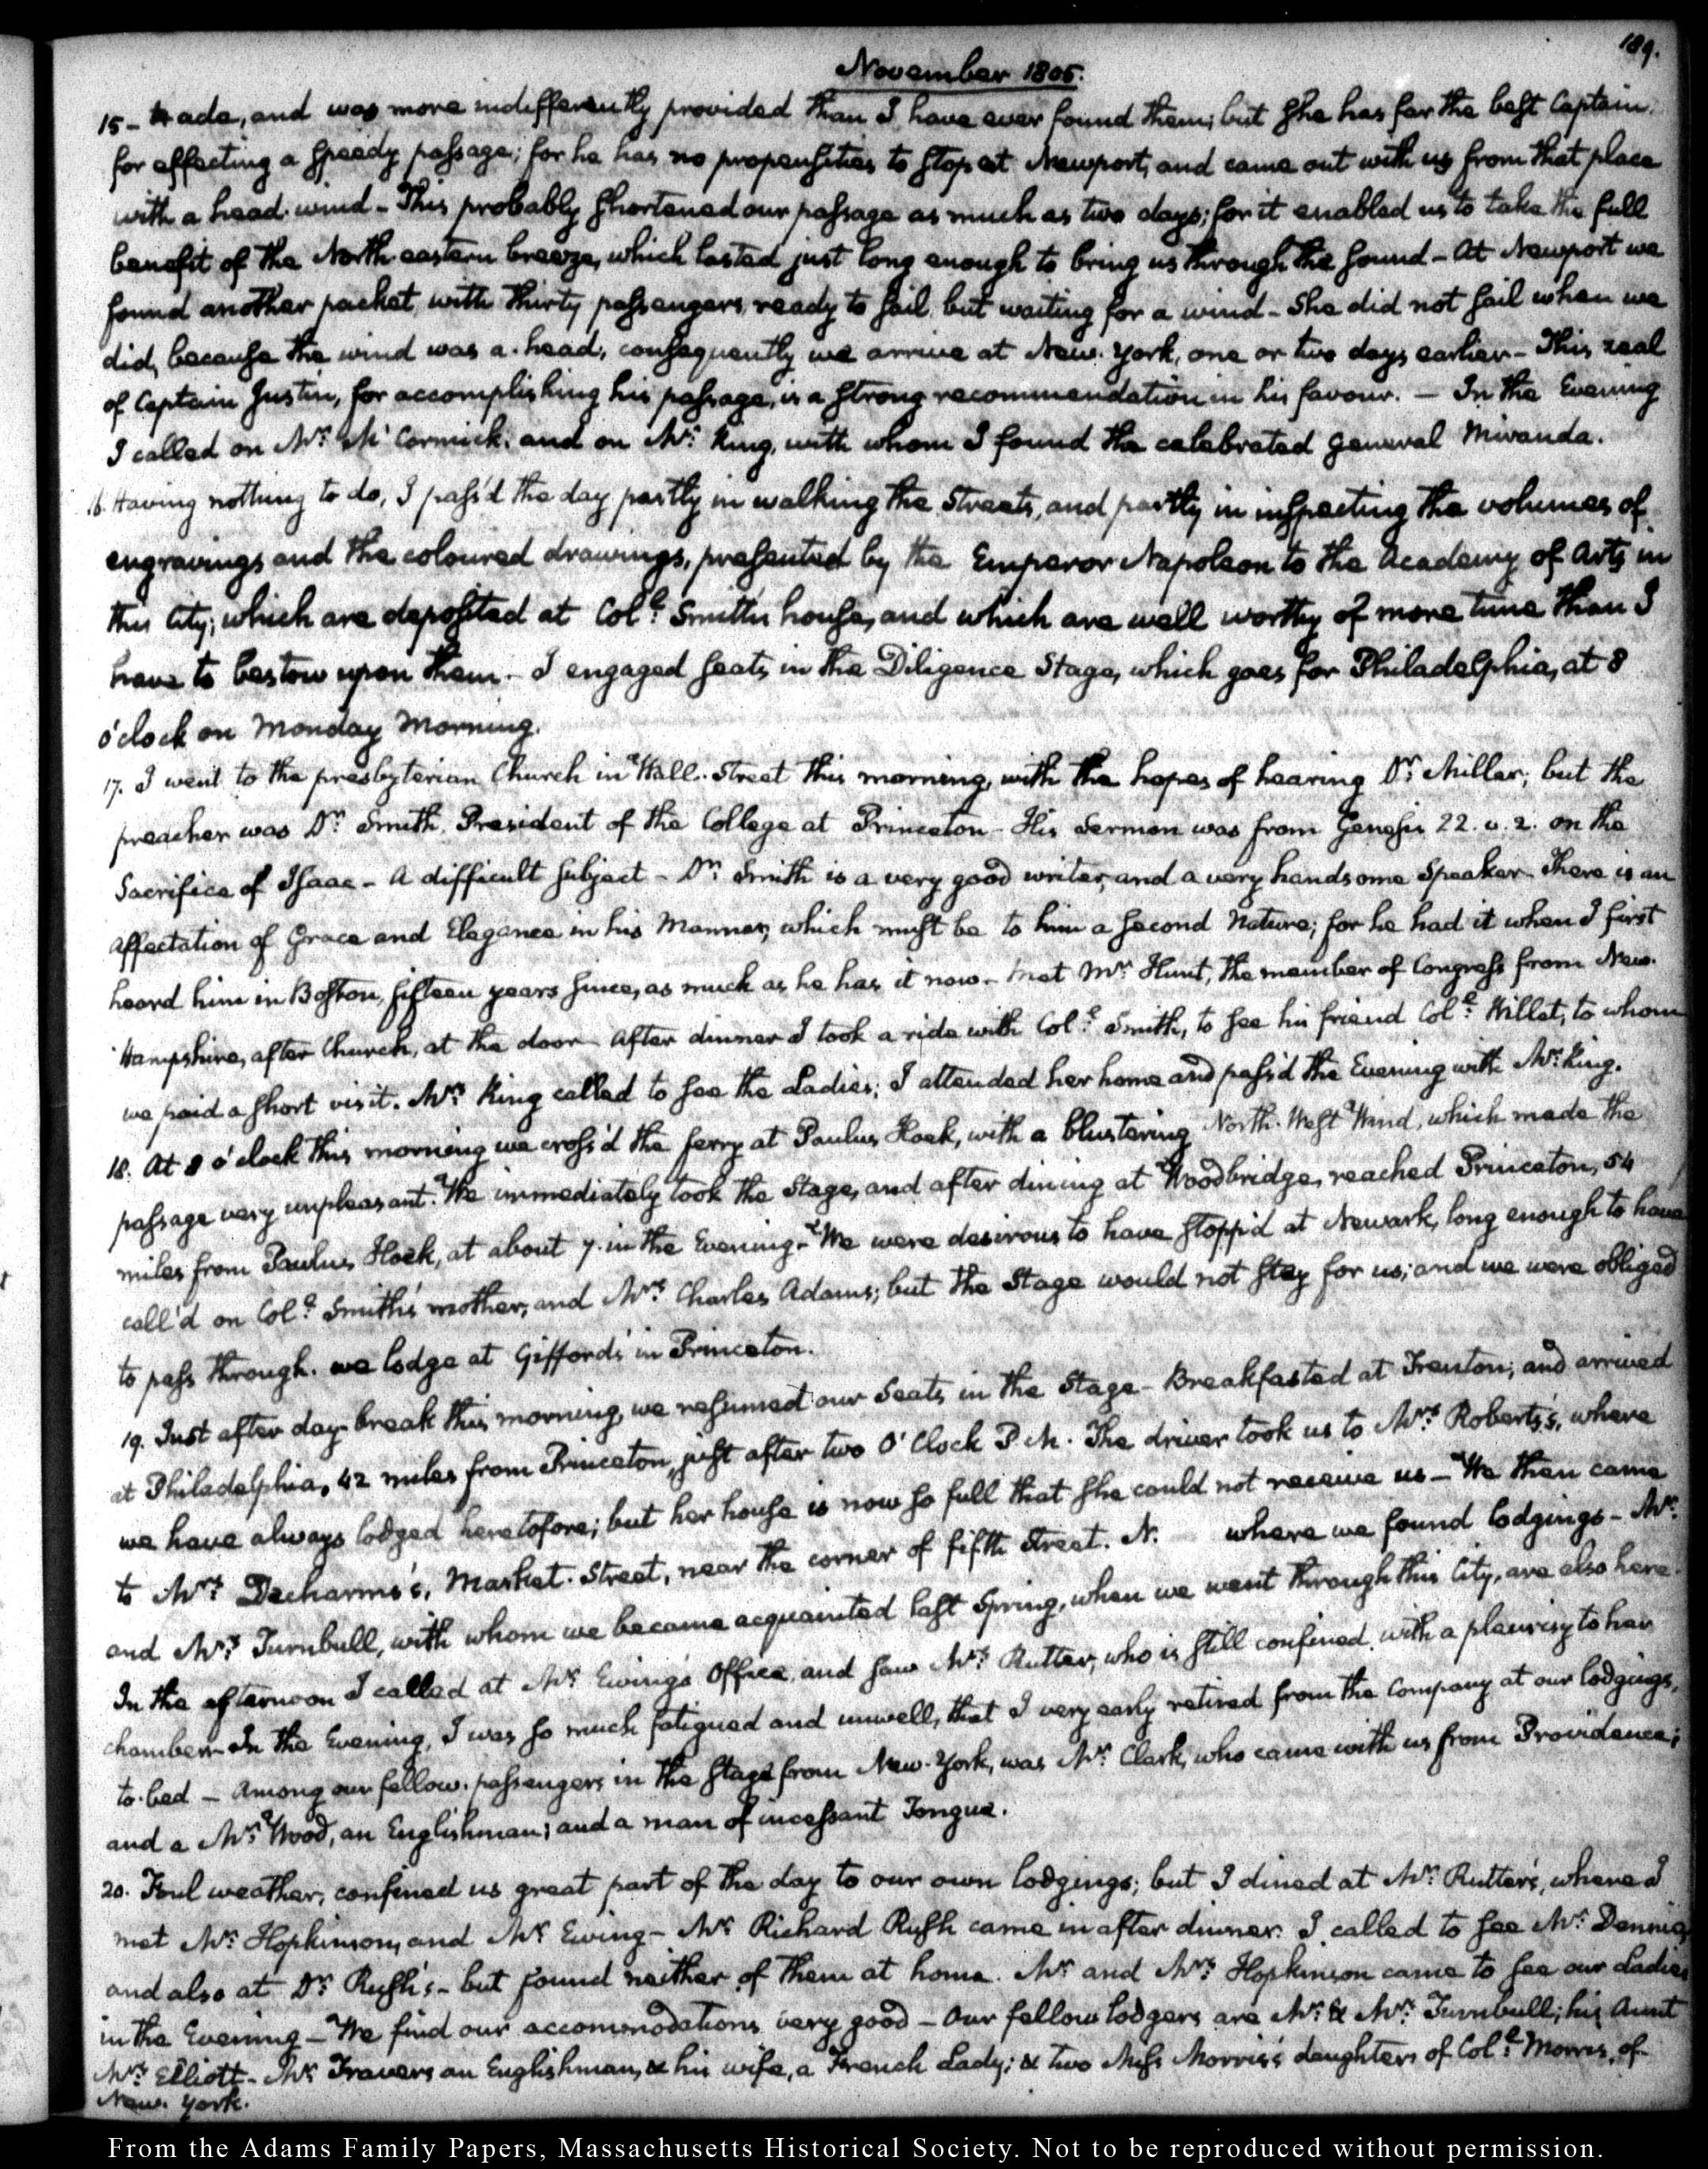 189.
November 1805.
15 - trade, and was more indifferently provided than I have ever found them; but she has far the best Captain
for effecting a speedy passage; for he has no propensities to stop at Newport, and came out with us from that place
with a head-wind - This probably shortened our passage as much as two days; for it enabled us to take the full
benefit of the North eastern breeze, which lasted just long enough to bring us through the sound - At Newport we
found another packet, with thirty passengers, ready to sail, but waiting for a wind - She did not sail when we
did, because the wind was a-head; consequently we arrive at New-York, one or two days earlier - This zeal
of Captain Justin, for accomplishing his passage, is a strong recommendation in his favour. - In the Evening
I called on Mr: McCormick, and on Mr: King, with whom I found the celebrated General Miranda.
16. Having nothing to do, I pass'd the day partly in walking the Streets, and partly in inspecting the volumes of
engravings and the coloured drawings, presented by the Emperor Napoleon to the Academy of Arts in
this City; which are deposited at Coll: Smith's house, and which are well worthy of more time than I
have to bestow upon them - I engaged seats in the Diligence Stage, which goes for Philadelphia, at 8
o'clock on Monday Morning.
17. I went to the presbyterian Church in Wall-Street this morning, with the hopes of hearing Dr: Miller; but the
preacher was Dr: Smith, President of the College at Princeton - His Sermon was from Genesis 22. v. 2. on the
Sacrifice of Isaac - A difficult subject - Dr: Smith is a very good writer, and a very handsome Speaker - There is an
affectation of Grace and Elegance in his Manner, which must be to him a second Nature; for he had it when I first
heard him in Boston, fifteen years since, as much as he has it now - Met Mr: Hunt, the member of Congress from New-
Hampshire, after Church, at the door - After dinner I took a ride with Coll: Smith, to see his friend Coll: Willet, to whom
we paid a short visit. Mrs: King called to see the Ladies; I attended her home and pass'd the Evening with Mr: King.
18. At 8 o'clock this morning we cross'd the ferry at Paulus Hook, with a blustering North-West Wind, which made the
passage very unpleasant. We immediately took the Stage, and after dining at Woodbridge, reached Princeton, 54
miles from Paulus Hook, at about 7 in the Evening - We were desirous to have stopp'd at Newark, long enough to have
call'd on Coll: Smith's mother, and Mrs: Charles Adams; but the Stage would not stay for us; and we were obliged
to pass through. We lodge at Gifford's in Princeton.
19. Just after day-break this morning, we resumed our Seats in the Stage - Breakfasted at Trenton; and arrived
at Philadelphia, 42 miles from Princeton, just after two O'Clock P.M. The driver took us to Mrs: Roberts's, where
we have always lodged heretofore; but her house is now so full that she could not receive us - We then came
to Mrs: Decharms's, Market-Street, near the corner of fifth Street. N. where we found lodgings - Mr:
and Mrs: Turnbull, with whom we became acquainted last Spring, when we went through this City, are also here.
In the afternoon I called at Mr: Ewing's Office, and saw Mrs: Rutter, who is still confined with a pleurisy to her
chamber - In the Evening, I was so much fatigued and unwell, that I very early retired from the Company at our lodgings,
to bed - Among our fellow-passengers in the Stage from New-York, was Mr: Clark, who came with us from Providence;
and a Mr: Wood, an Englishman; and a man of incessant Tongue.
20. Foul weather, confined us great part of the day to our own lodgings; but I dined at Mr: Rutter's, where I
met Mr: Hopkinson, and Mr: Ewing - Mr: Richard Rush came in after dinner. I called to see Mr: Dennie,
and also at Dr: Rush's - but found neither of them at home. Mr: and Mrs: Hopkinson came to see our Ladies
in the Evening - We find our accommodations very good - Our fellow lodgers are Mr: & Mrs: Turnbull; his Aunt
Mrs: Elliott - Mr: Travers an Englishman, & his wife, a French Lady; & two Miss Morris's daughters of Coll: Morris, of
New-York.
From the Adams Family Papers, Massachusetts Historical Society. Not to be reproduced without permission.